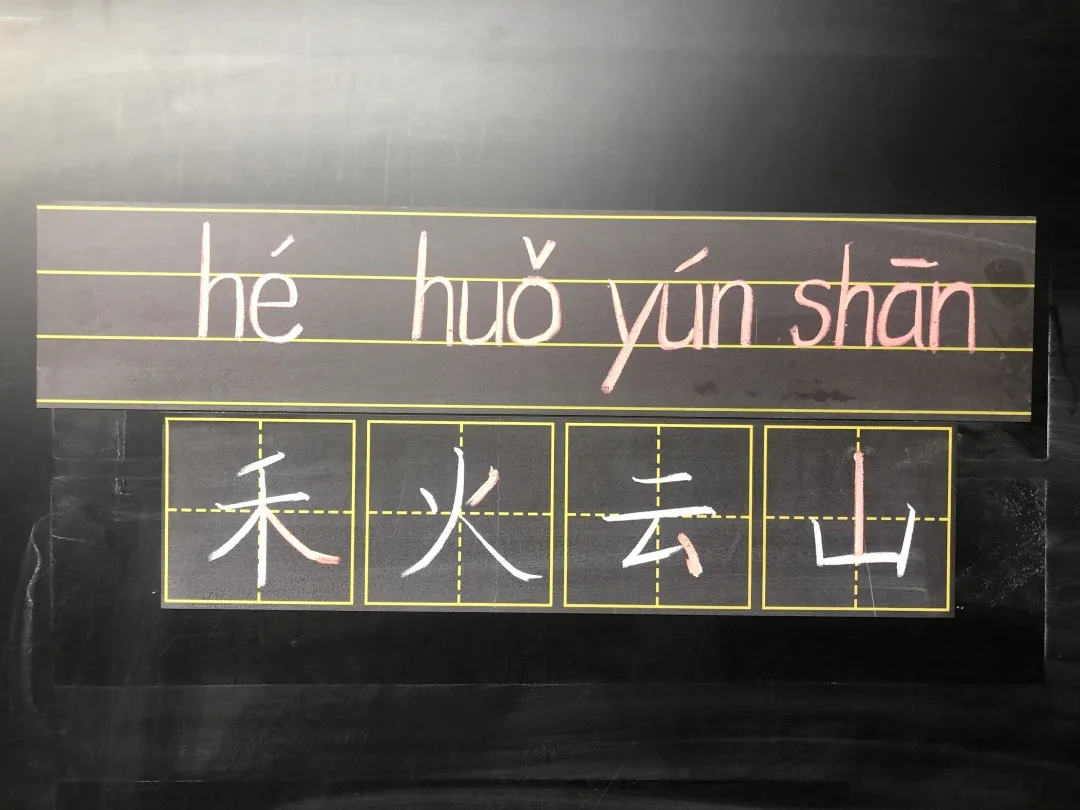 hé huǒ yún shān
禾 火 云 山